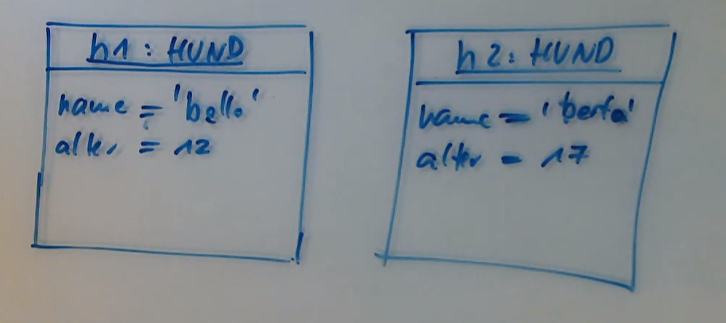 h1 : HUND
name = 'bello'
alter = 12
h2 : HUND
name = 'berta'
alter = 17